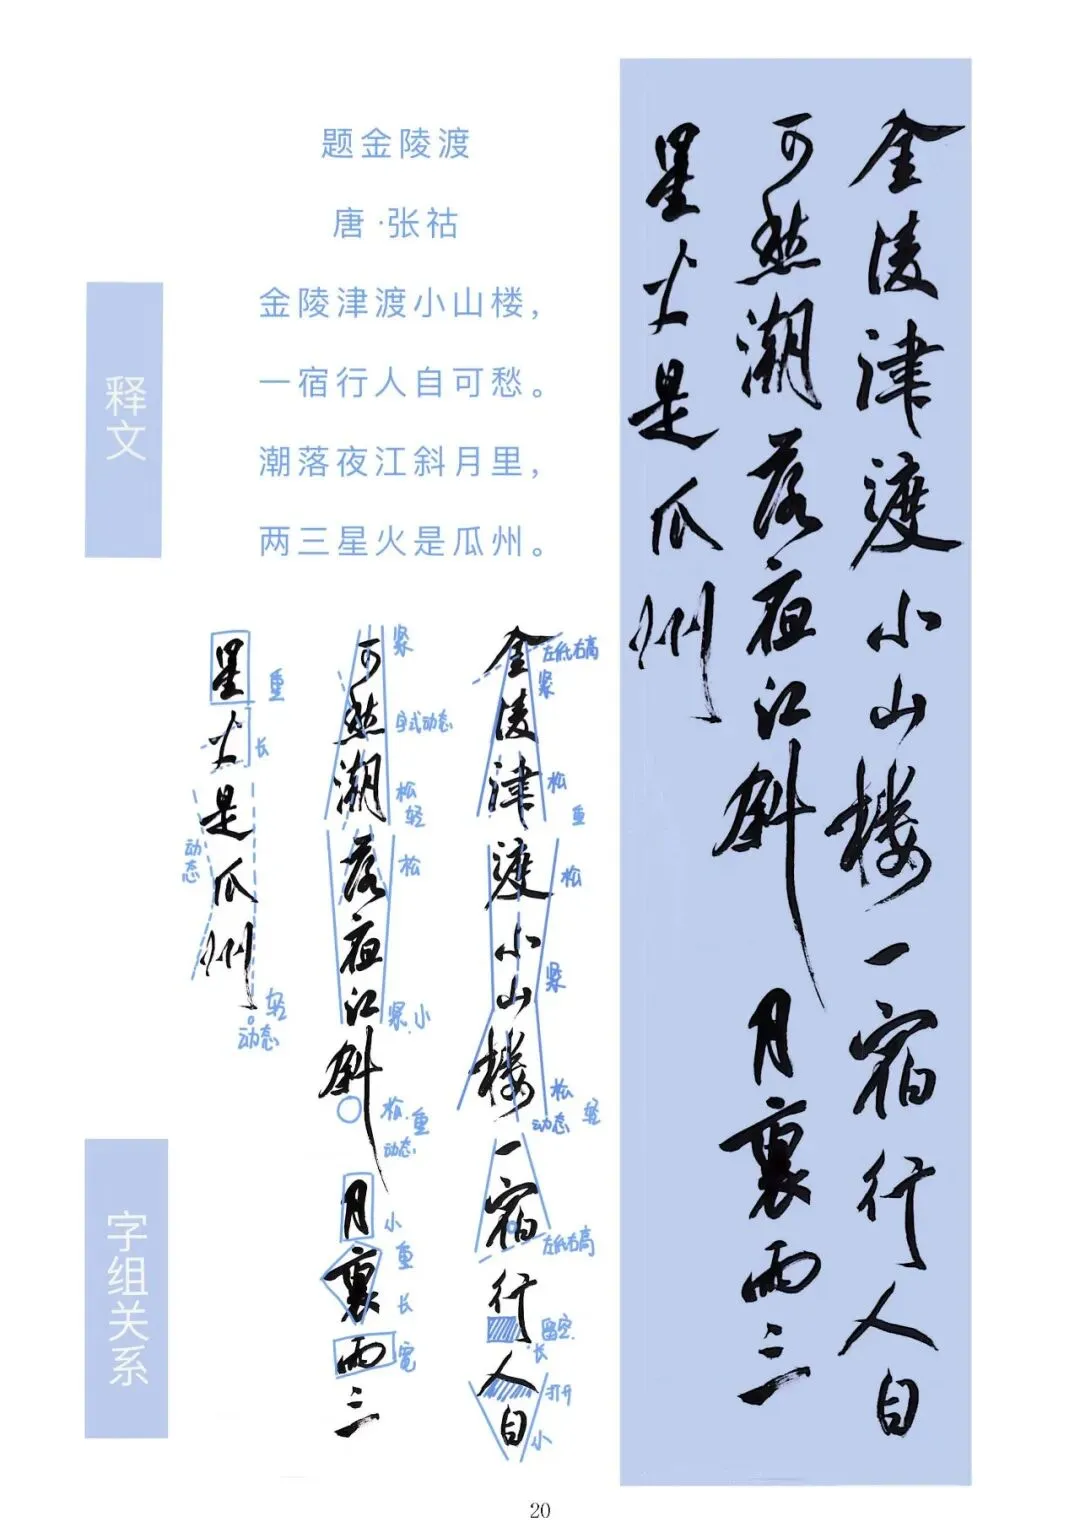 题金陵渡
唐·张祜
金陵津渡小山楼，
一宿行人自可愁。
潮落夜江斜月里，
两三星火是瓜州。
释文
金陵津渡小山楼一宿行人自
可愁潮落夜江斜月裏两三
星火是瓜州
字组关系
金陵津渡小山楼一宿行人自
左低右高
紧
松
重
松
紧
松
轻
动态
左低右高
留空
长
打开
小
可愁潮落夜江斜月裏两三
紧
字式动态
松
轻
松
紧.小
松.重
动态
小
重
长
宽
星火是瓜州
重
长
动态
轻
动态
20